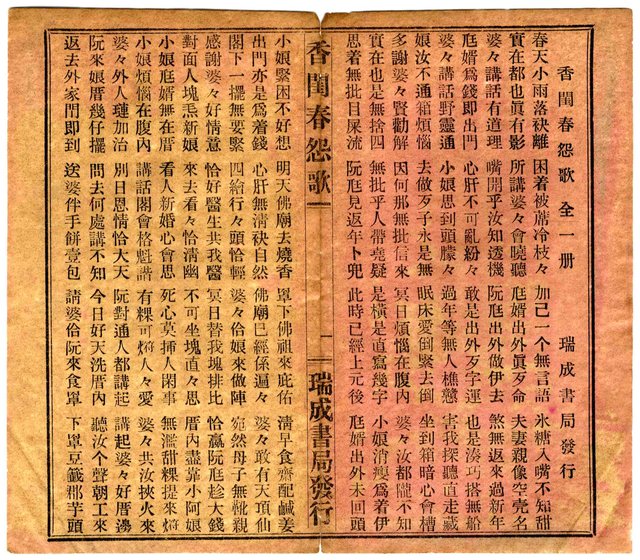 香閨春怨歌 全一册 瑞成書局發行
春天小雨落袂離 困着被蓆冷枝々 加己一个無言語 氷糖入嘴不知甜
實在都也眞有影 所講婆々會曉聽 厐婿出外眞歹命 夫妻親像空売名
婆々講話有道理 嘴開乎汝知透機 阮厐出外做伊去 煞無返來過新年
厐婿爲錢即出門 心肝不可亂紛々 敢是出外歹字運 也是湊巧搭無船
婆々講話野靈通 小娘思到頭朦々 過年等無人樵戇 害我探聽直走藏
娘汝不通箱煩惱 去做歹子永是無 眠床愛倒緊去倒 坐到箱暗心會糟
多謝婆々賢勸解 因何那無批信來 冥日煩惱在腹內 婆々汝都攏不知
實在也是無捨四 無批乎人帶堯疑 是橫是直寫幾字 小娘消瘦爲着伊
思着無批目屎流 阮厐見返年卜兜 此時已經上元後 厐婿出外未回頭
香閨春怨歌 一 瑞成書局發行
小娘緊困不好想 明天佛廟去燒香 單下佛祖來庇佑 淸早食齋配鹹姜
出門亦是爲着錢 心肝無淸袂自然 佛廟已經係遍々 婆々敢有天頂仙
閣下一擺無要緊 四繪行々頭恰輕 婆々伯娘來做陣 宛然母子無靴親
感謝婆々好情意 恰好醫生共我醫 冥日替我塊排比 恰贏阮厐趁大錢
對面人塊𤆬新娘 來去看々恰淸幽 不可坐塊直々思 厝內盡靠小阿娘
小娘厐婿無在厝 看人新婚心會思 死心莫揷人閑事 無濫甜粿提來煩
小娘煩惱在腹內 講話閣會格魁諧 有粿可𤆬人々愛 婆々共汝挾火來
婆々外人璉加治 別日恩情恰大天 阮對通人都講起 講起婆々好厝邊
阮來娘厝幾仔擺 問去何處講不知 今日好天洗厝內 聽汝个聲朝工來
返去外家門即到 送婆伴手餅壹包 請婆伯阮來食單 下單豆籤郡芋頭